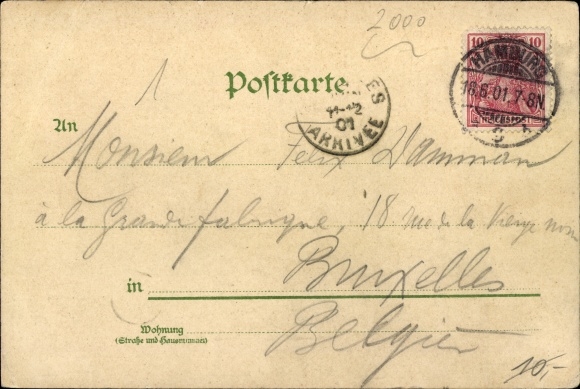 2000
10 10
HAMBURG
16.6.01.7-8N
REICHSPOST
1
Postkarte
ES
11-12
01
ARRIVÉE
An
Monsieur Felix
à la Grande fabrique, 18 rue de la Vierge noire
in Bruxelles
Wohnung
(Straße und Hausnummer)
Belgien
10,-